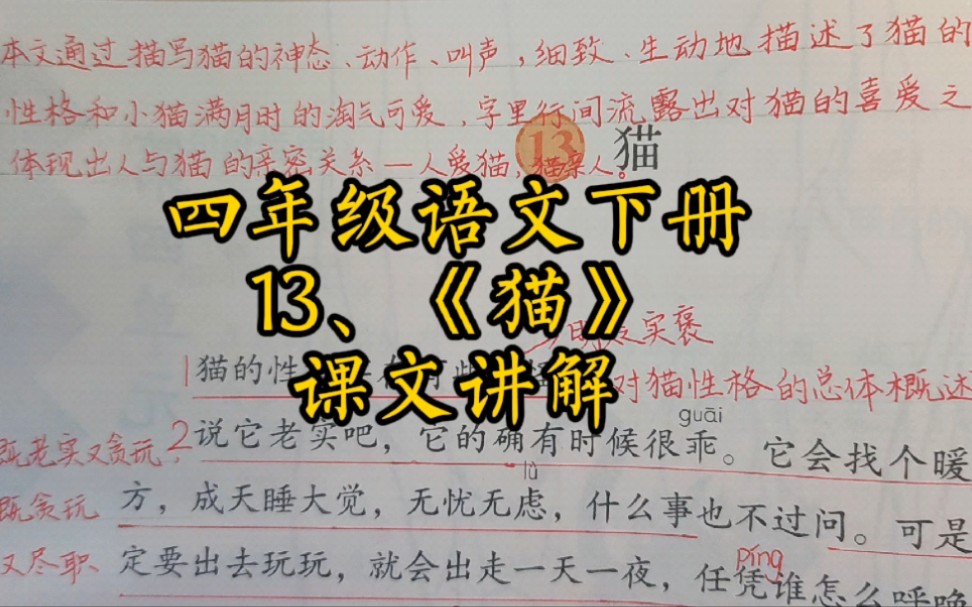 本文通过描写猫的神态、动作、叫声，细致、生动地描述了猫的
性格和小猫满月时的淘气可爱，字里行间流露出对猫的喜爱之
体现出人与猫的亲密关系—人爱猫，猫亲人。
13 猫
四年级语文下册
13、《猫》
课文讲解
实褒
1猫的性
对猫性格的总体概述
guāi
既老实又贪玩，
2说它老实吧，它的确有时候很乖。它会找个暖
lǜ
既贪玩
方，成天睡大觉，无忧无虑，什么事也不过问。可是
píng
又尽职
定要出去玩玩，就会出走一天一夜，任凭谁怎么呼唤